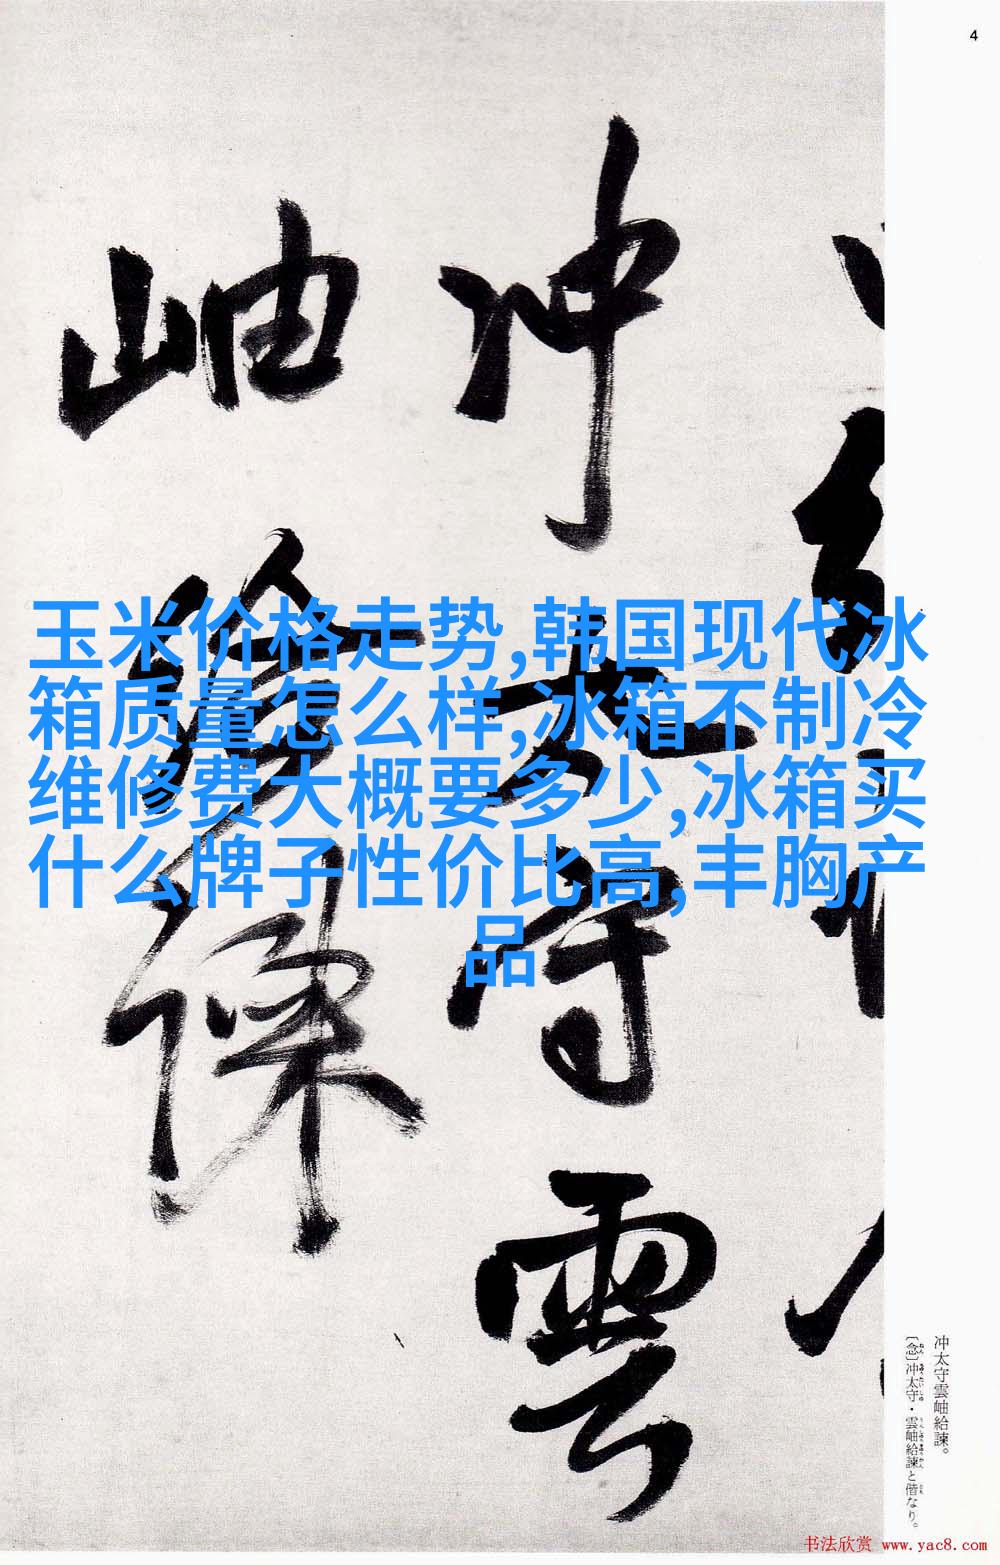 4
冲太守雲
岫給諫
玉米价格走势,韩国现代冰
箱质量怎么样,冰箱不制冷
维修费大概要多少,冰箱买
什么牌子性价比高,丰胸产
品
冲太守雲岫給諫。
〔念〕冲太守・雲岫給諫と偕なり。
书法欣赏 www.yac8.com